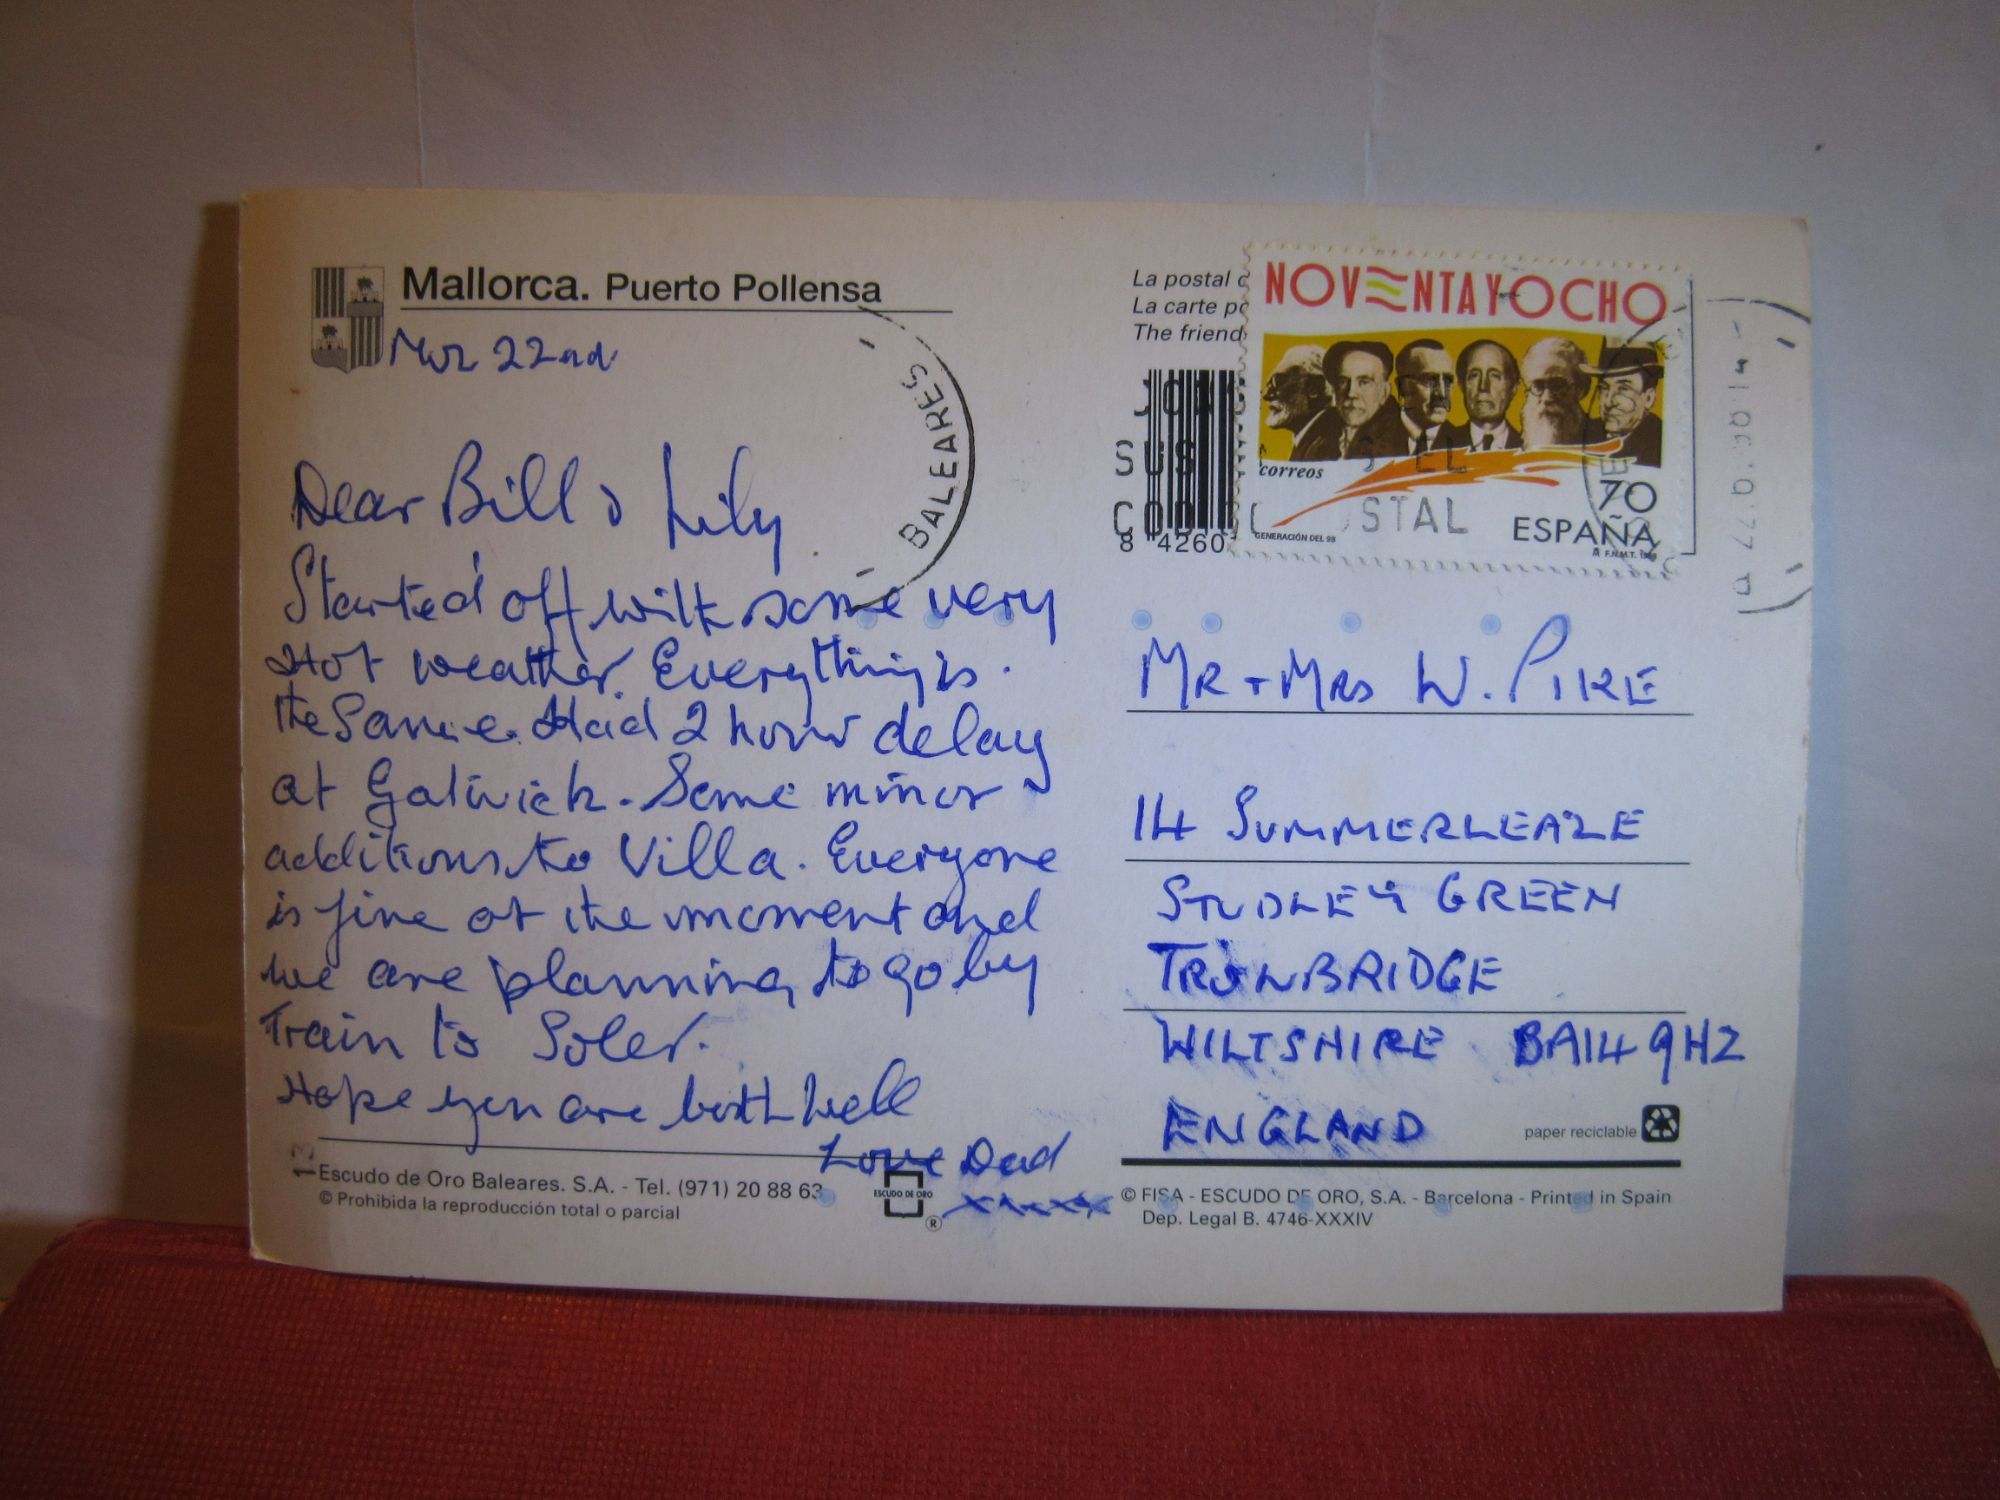 Mallorca. Puerto Pollensa
22nd
Dear Bill & Lily
Started off with some very
Hot weather. Everything is
the Same. Had 2 hour delay
at Gatwick. Some minor
additions to Villa. Everyone
is fine at the moment and
we are planning to go by
Train to Soler.
Hope you are both well
Love Dad
xxxxx
13
Escudo de Oro Baleares. S.A. - Tel. (971) 20 88 63
© Prohibida la reproducción total o parcial
ESCUDO DE ORO
®
BALEARES
La postal
La carte
The friend
NOVENTAYOCHO
correos
70
ESPAÑA
GENERACIÓN DEL 98
F.N.M.T.
SUS EL
POSTAL
8 4260
MR + MRS W. PIKE
14 SUMMERLEAZE
STUDLEY GREEN
TROWBRIDGE
WILTSHIRE BA14 9HZ
ENGLAND
paper reciclable
© FISA - ESCUDO DE ORO, S.A. - Barcelona - Printed in Spain
Dep. Legal B. 4746-XXXIV